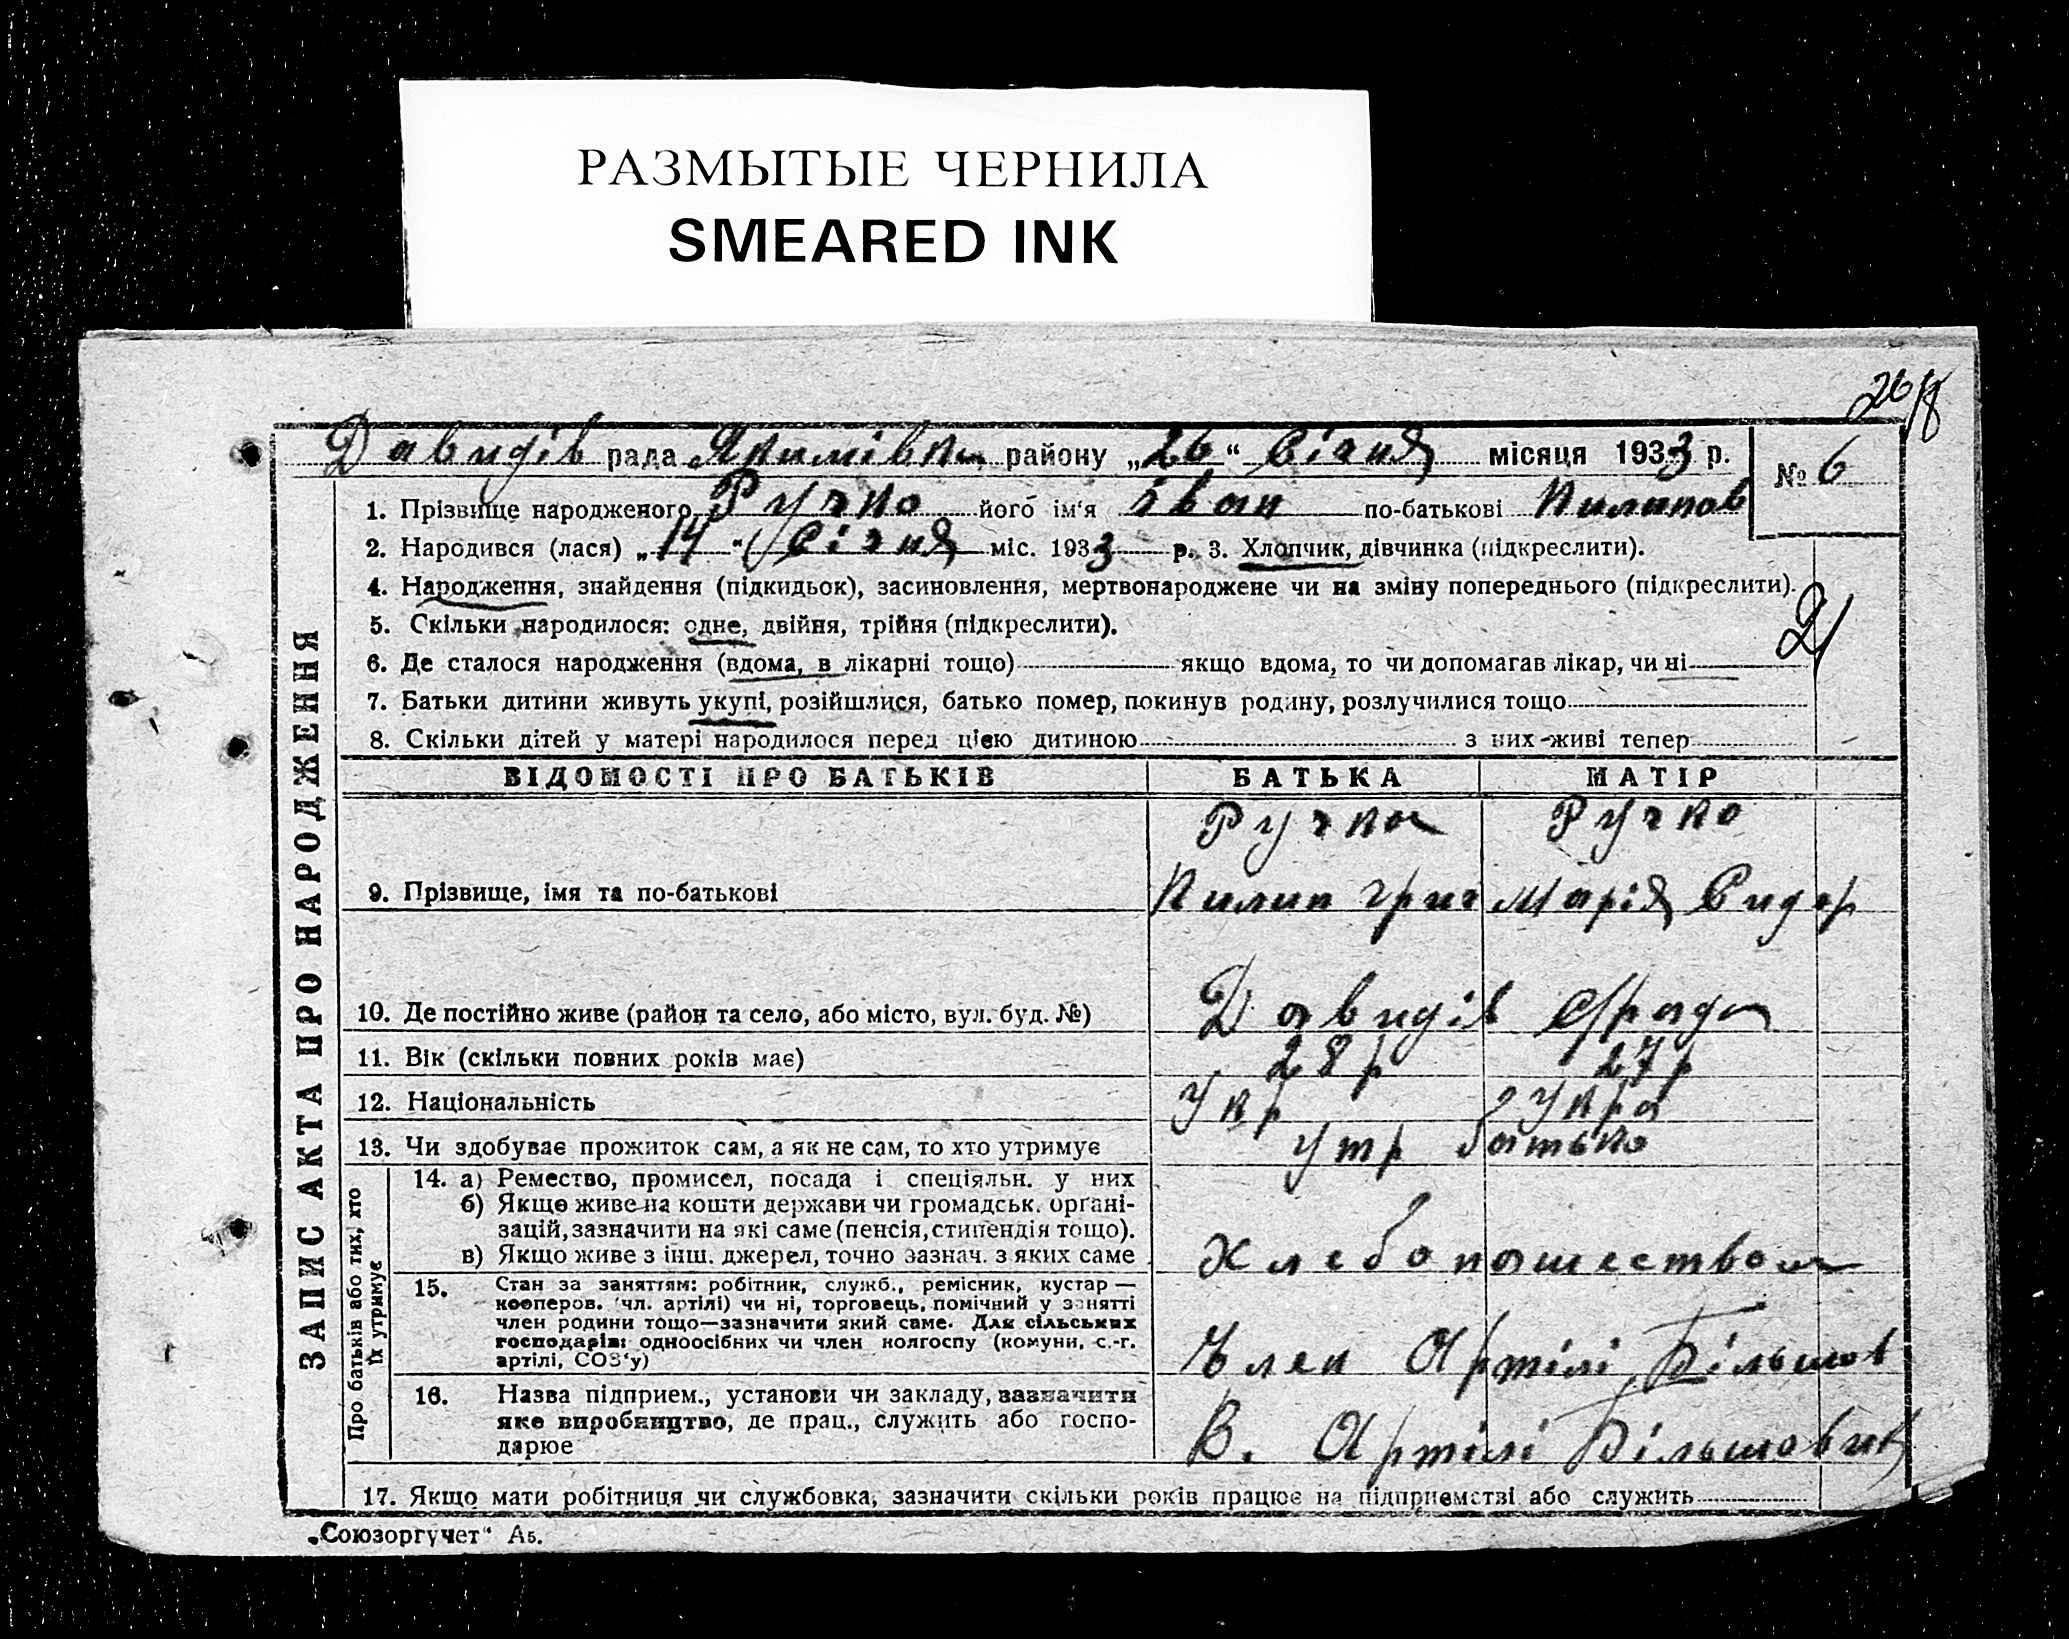 РАЗМЫТЫЕ ЧЕРНИЛА
SMEARED INK
26/8
Давидів рада Якимівки району „26“ Січня місяця 1933 р.
№ 6
1. Прізвище народженого Ручко його ім‘я Іван по-батькові Пилипов
2. Народився (лася) „14“ Січня міс. 1933 р. 3. Хлопчик, дівчинка (підкреслити).
4. Народження, знайдення (підкидьок), засиновлення, мертвонароджене чи на зміну попереднього (підкреслити).
5. Скільки народилося: одне, двійня, трійня (підкреслити).
6. Де сталося народження (вдома, в лікарні тощо) якщо вдома, то чи допомагав лікар, чи ні
7. Батьки дитини живуть укупі, розійшлися, батько помер, покинув родину, розлучилися тощо
8. Скільки дітей у матері народилося перед цією дитиною з них живі тепер
ЗАПИС АКТА ПРО НАРОДЖЕННЯ
ВІДОМОСТІ ПРО БАТЬКІВ БАТЬКА МАТІР
Ручко Ручко
9. Прізвище, імя та по-батькові Пилип Григ Марія Сидор
10. Де постійно живе (район та село, або місто, вул. буд. №) Давидів с/рада
11. Вік (скільки повних років має) 28 р 27 р
12. Національність Укр Укра
13. Чи здобуває прожиток сам, а як не сам, то хто утримує утр батько
Про батьків або тих, хто їх утримує
14. а) Ремество, промисел, посада і спеціяльн. у них
б) Якщо живе на кошти держави чи громадськ. органі-
зацій, зазначити на які саме (пенсія, стипендія тощо).
в) Якщо живе з інш. джерел, точно зазнач. з яких саме Хлебопашеством
15. Стан за заняттям: робітник, служб., ремісник, кустар —
кооперов. (чл. артілі) чи ні, торговець, помічний у занятті
член родини тощо—зазначити який саме. Для сільських
господарів: одноосібних чи член колгоспу (комуни, с.-г.
артілі, СОЗ‘у) Член Артілі Більшов
16. Назва підприєм., установи чи закладу, зазначити
яке виробництво, де прац., служить або госпо-
дарює В. Артілі Більшовик
17. Якщо мати робітниця чи службовка, зазначити скільки років працює на підприємстві або служить
„Союзоргучет“ А5.